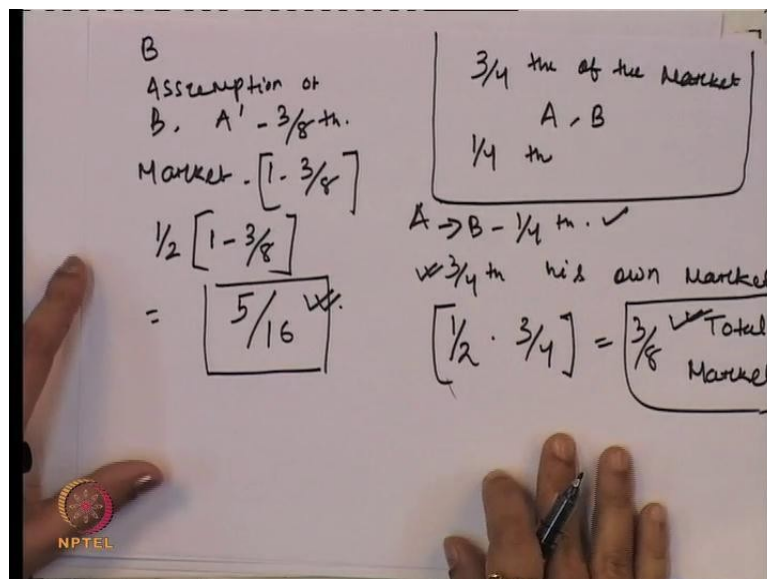 B
Assumption of
B, A' - 3/8 th.
Market - [1 - 3/8]
1/2 [1 - 3/8]
= 5/16
3/4 the of the Market
A, B
1/4 th
A → B - 1/4 th. ✓
✓ 3/4 th his own Market
[1/2 · 3/4] = 3/8 ✓ Total
Market
NPTEL